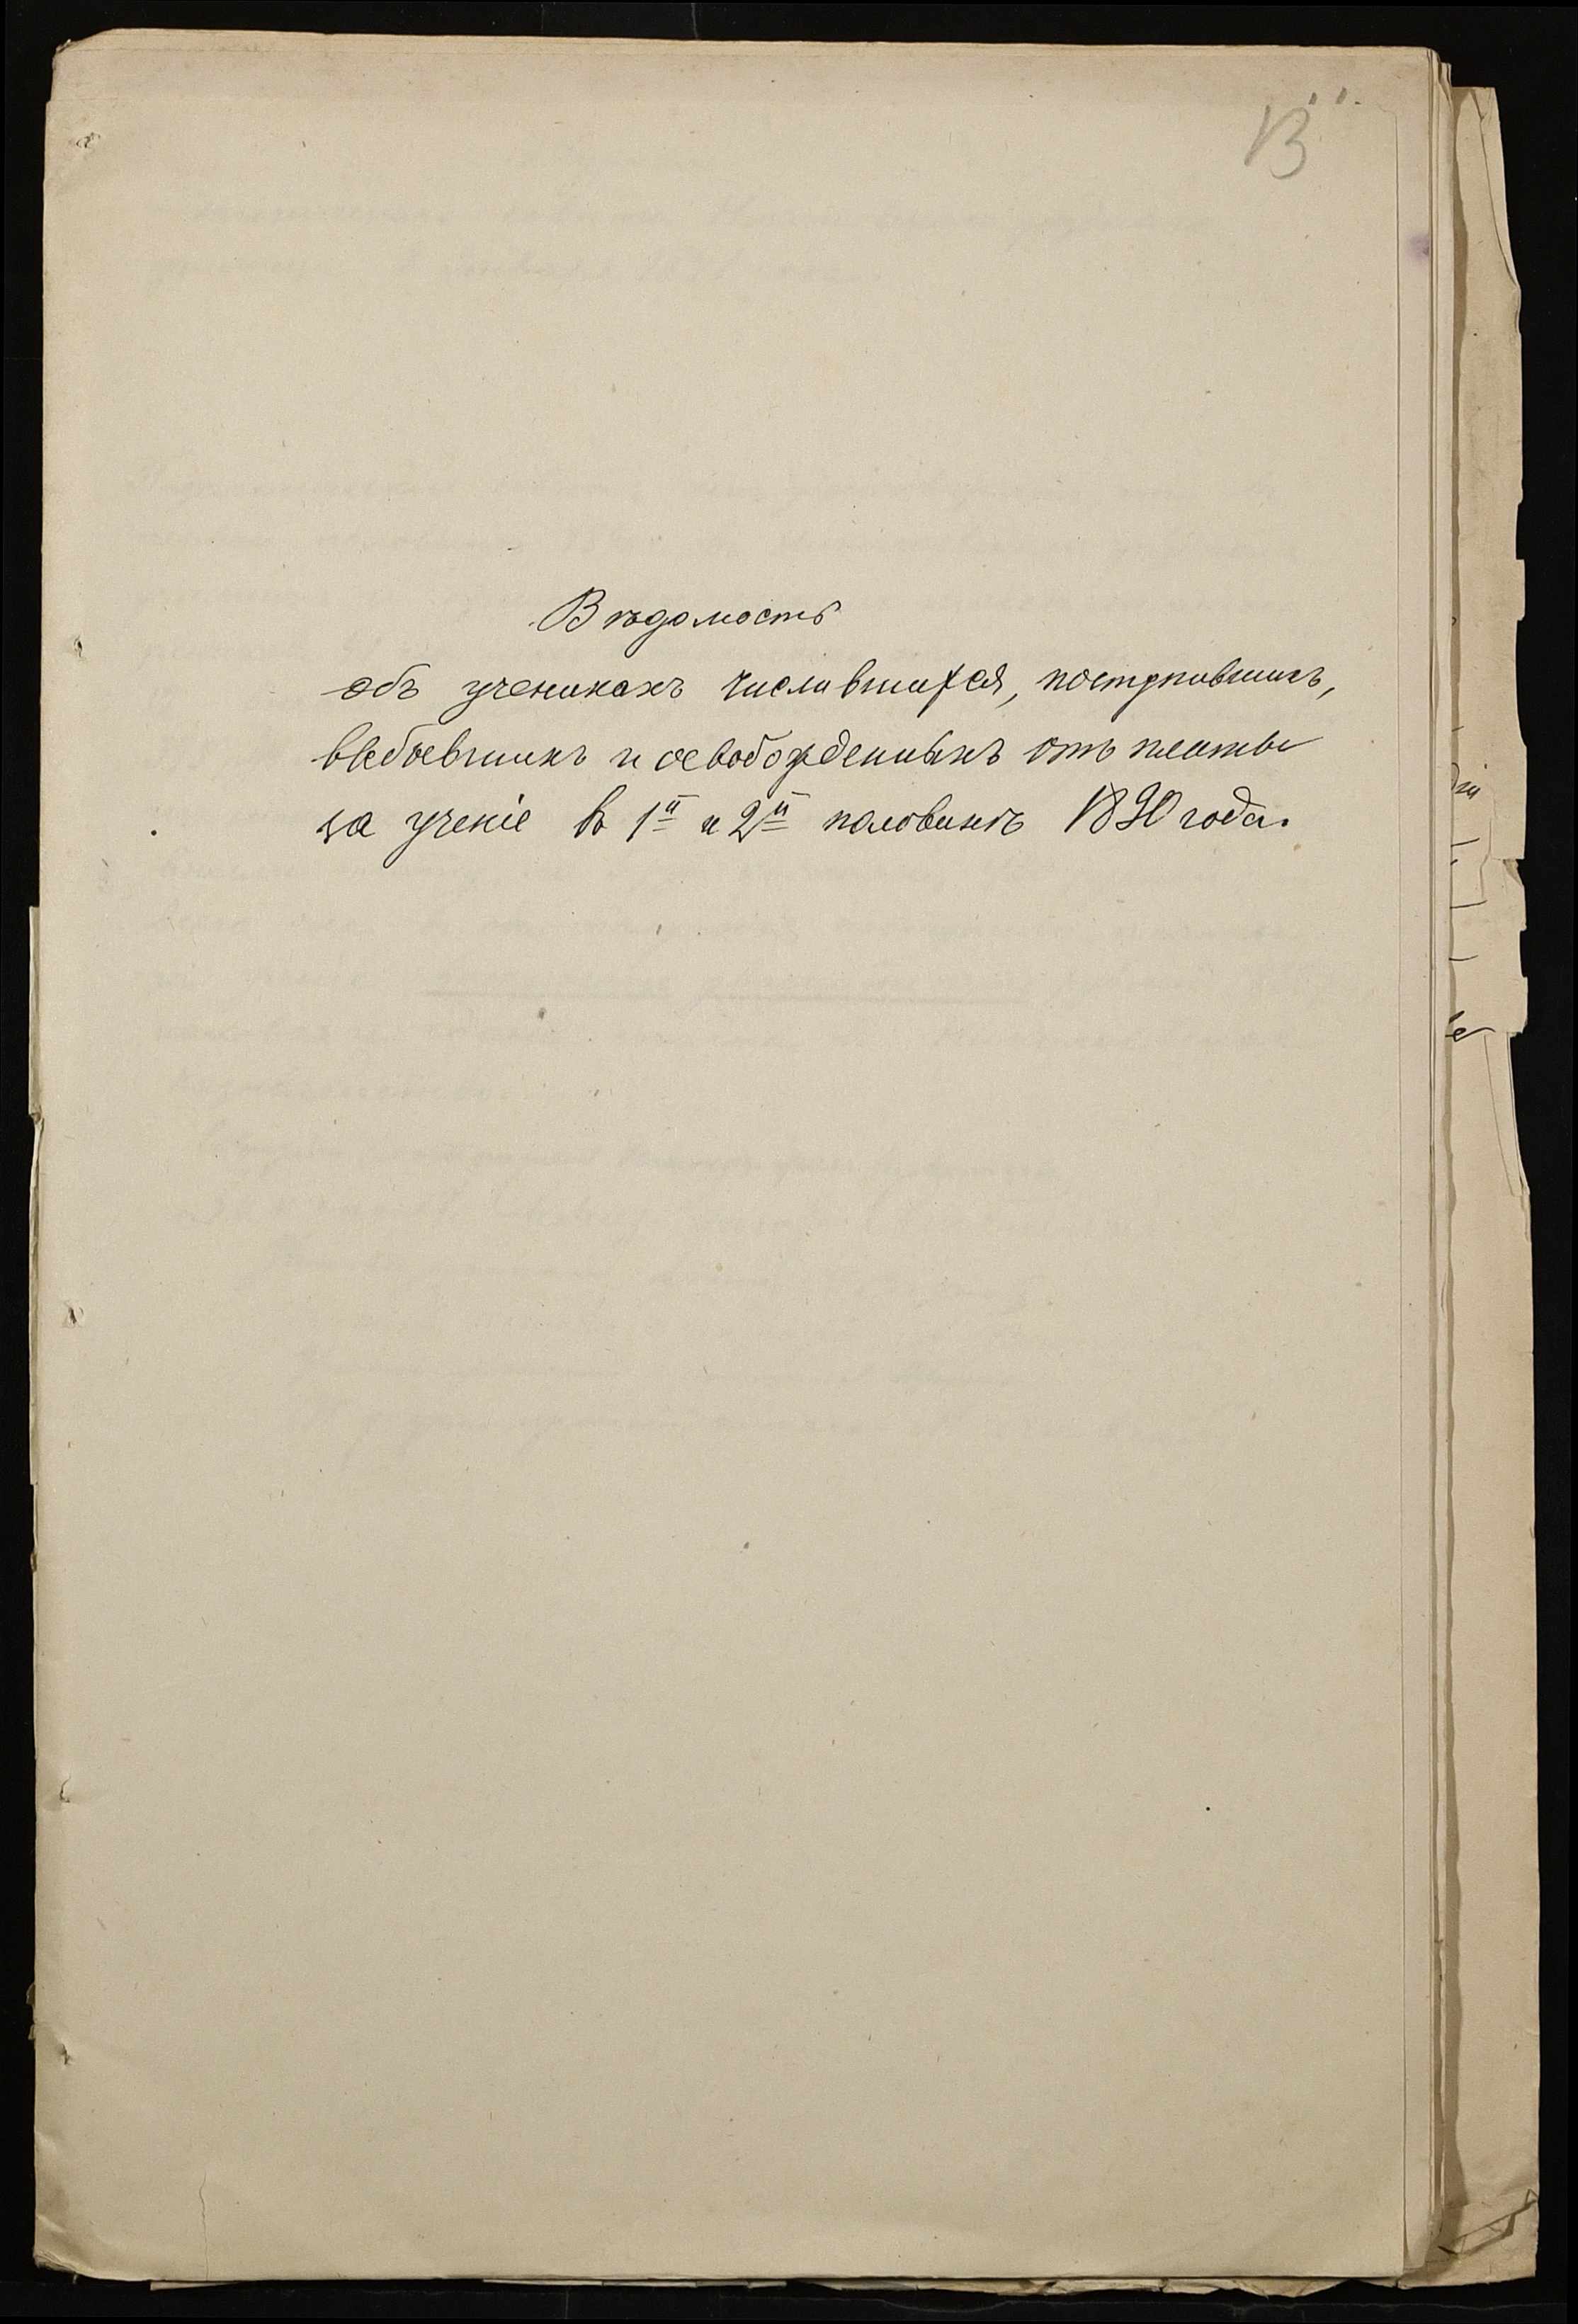 В"
Вѣдомость
объ ученикахъ числившихся, поступившихъ,
выбывшихъ и освобожденныхъ отъ платы
за ученіе въ 1й и 2й половинѣ 1890 года.